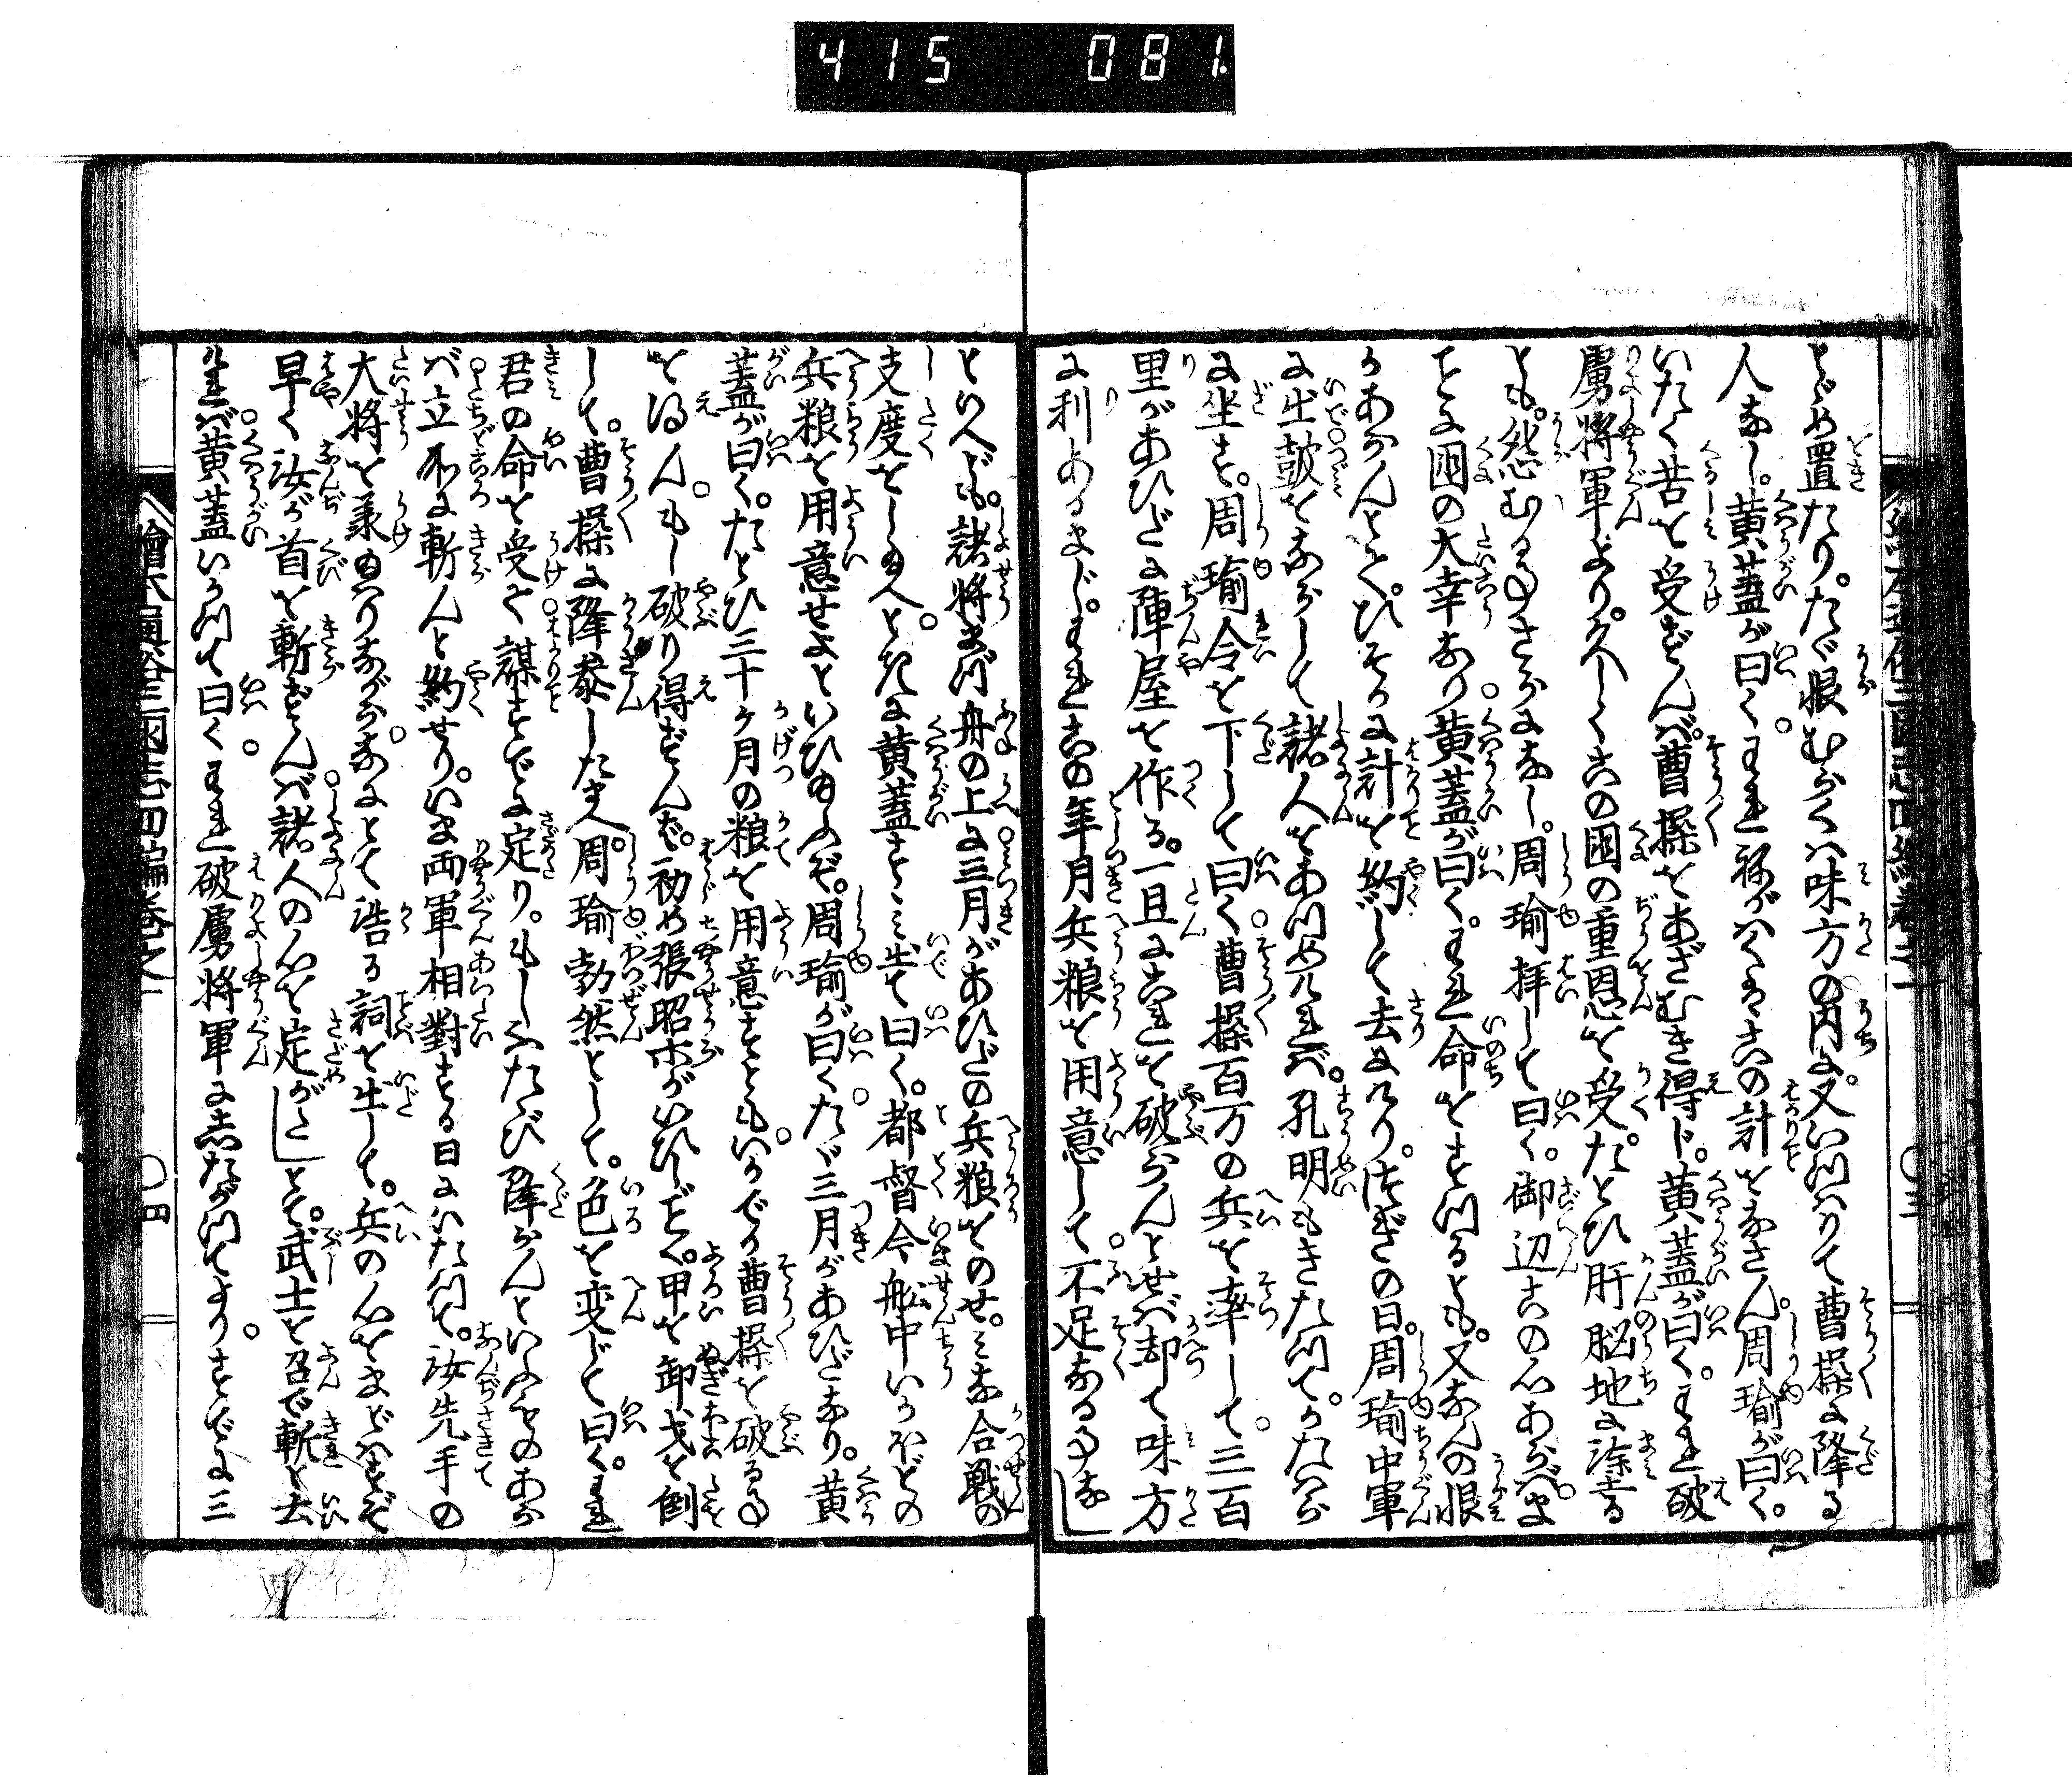 415 081
とゞめ置たり。たゞ恨むらくハ味方の内に。又いつハりて曹操に降る
人なし。黄蓋が曰く。われ祢がハくハ此の計をなさん。周瑜が曰く。
いたく苦を受ざれバ。曹操をあざむき得じ。黄蓋が曰く。われ破
虜将軍より。久しく此の国の重恩を受。たとひ肝脳地に塗る
とも。怨むることさらになし。周瑜拝して曰く。御辺此の心あらバ。ま
ことに国の大幸なり。黄蓋が曰く。われ命をすつるとも。又なんの恨
かあらんとて。ひそかに計を約して去にけり。次ぎの日。周瑜中軍
に出。鼓をならして諸人をあつめけれバ。孔明もきたつて。かたハら
に坐す。周瑜令を下して曰く。曹操百万の兵を率して。三百
里があひだに陣屋を作る。一旦に是を破らんとせバ却て味方
に利あるまじ。われ此の年月兵粮を用意して。不足なる事なし
といへども。諸将まづ舟の上に。三月があひだの兵粮をのせ。ミな合戦の
支度をし給へと。ときに黄蓋すゝミ出て曰く。都督今船中いかほどの
兵粮を用意せよといひ給ふぞ。周瑜が曰く。たゞ三月があひだなり。黄
蓋が曰く。たとひ三十ヶ月の粮を用意すとも。いかでか曹操を破る事
を得ん。もし破り得ずんバ。初め張昭ホがいひしごとく。甲を卸戈を倒
して。曹操に降参したまへ。周瑜勃然として。色を変じて曰く。われ
君の命を受て。謀すでに定り。もしふたゝび降らんといふものあら
バ立所に斬んと約せり。いま両軍相對する日にいたつて。汝先手の
大将を承給ハりながら。なにとて浩る詞を出して。兵の心をまどハすぞ
早く汝が首を斬ずんバ。諸人の心を定がたしとて。武士を召で斬と云
けれバ。黄蓋いかつて曰く。われ破虜将軍にしたがつてより。すでに三